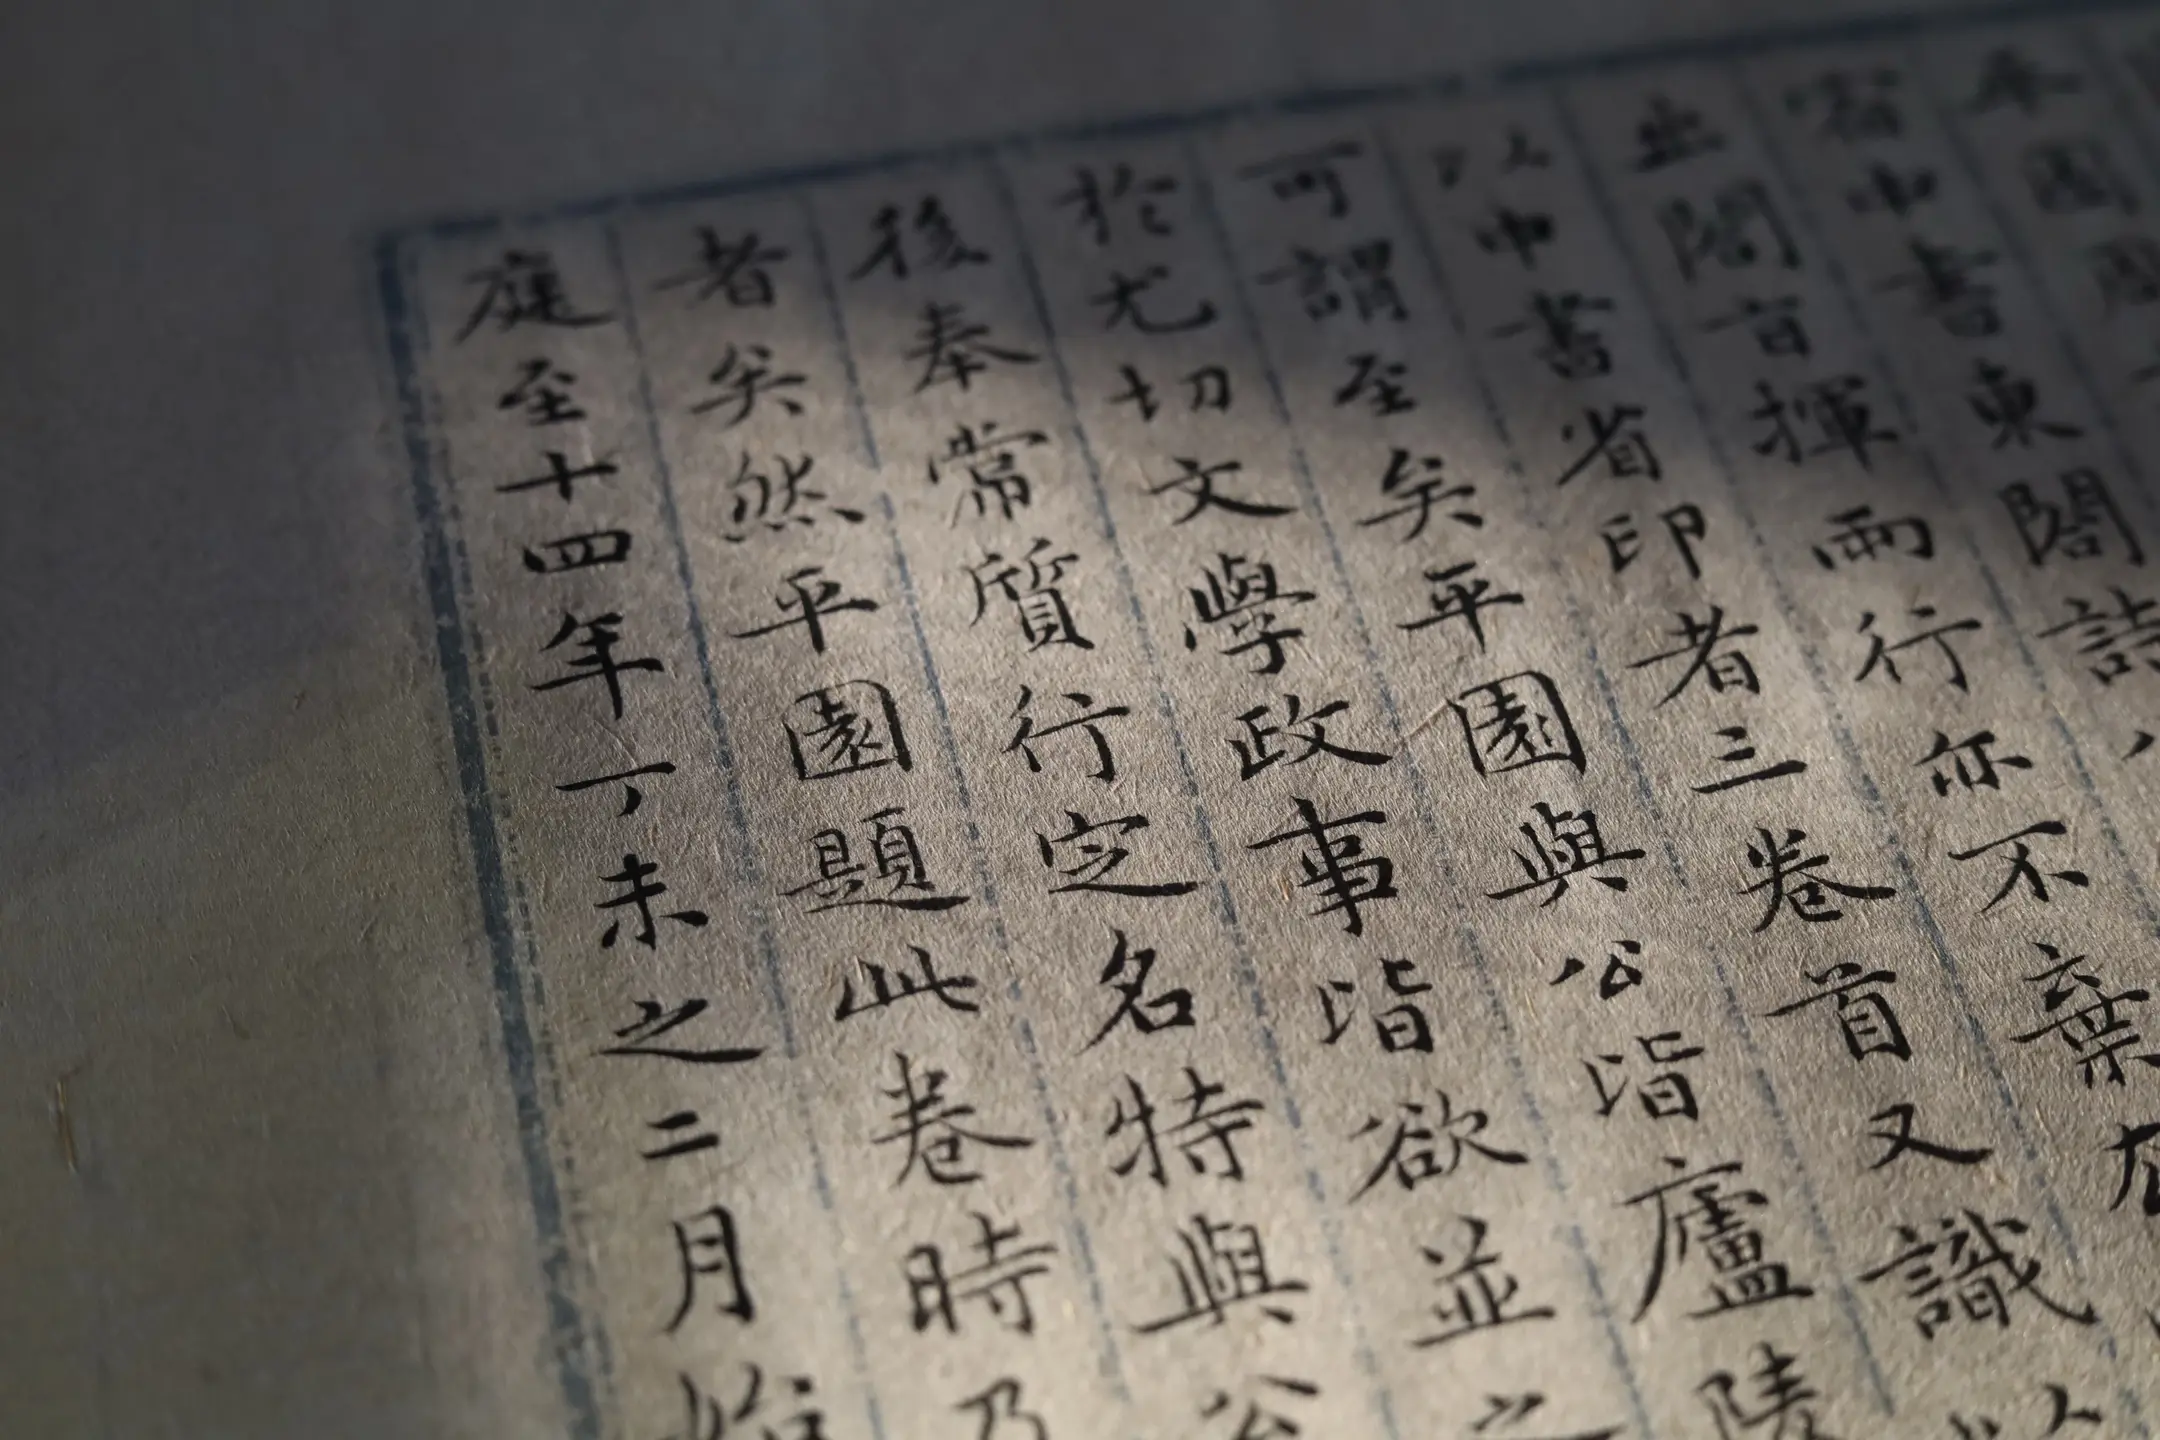 本園
宿中書東閣詩
出閣首揮兩行亦不棄
以中書省印者三卷首又識
可謂至矣平園與公皆廬陵
於尤切文學政事皆欲並之
後奉常質行定名特與公
者矣然平園題此卷時乃
庭至十四年丁未之二月始